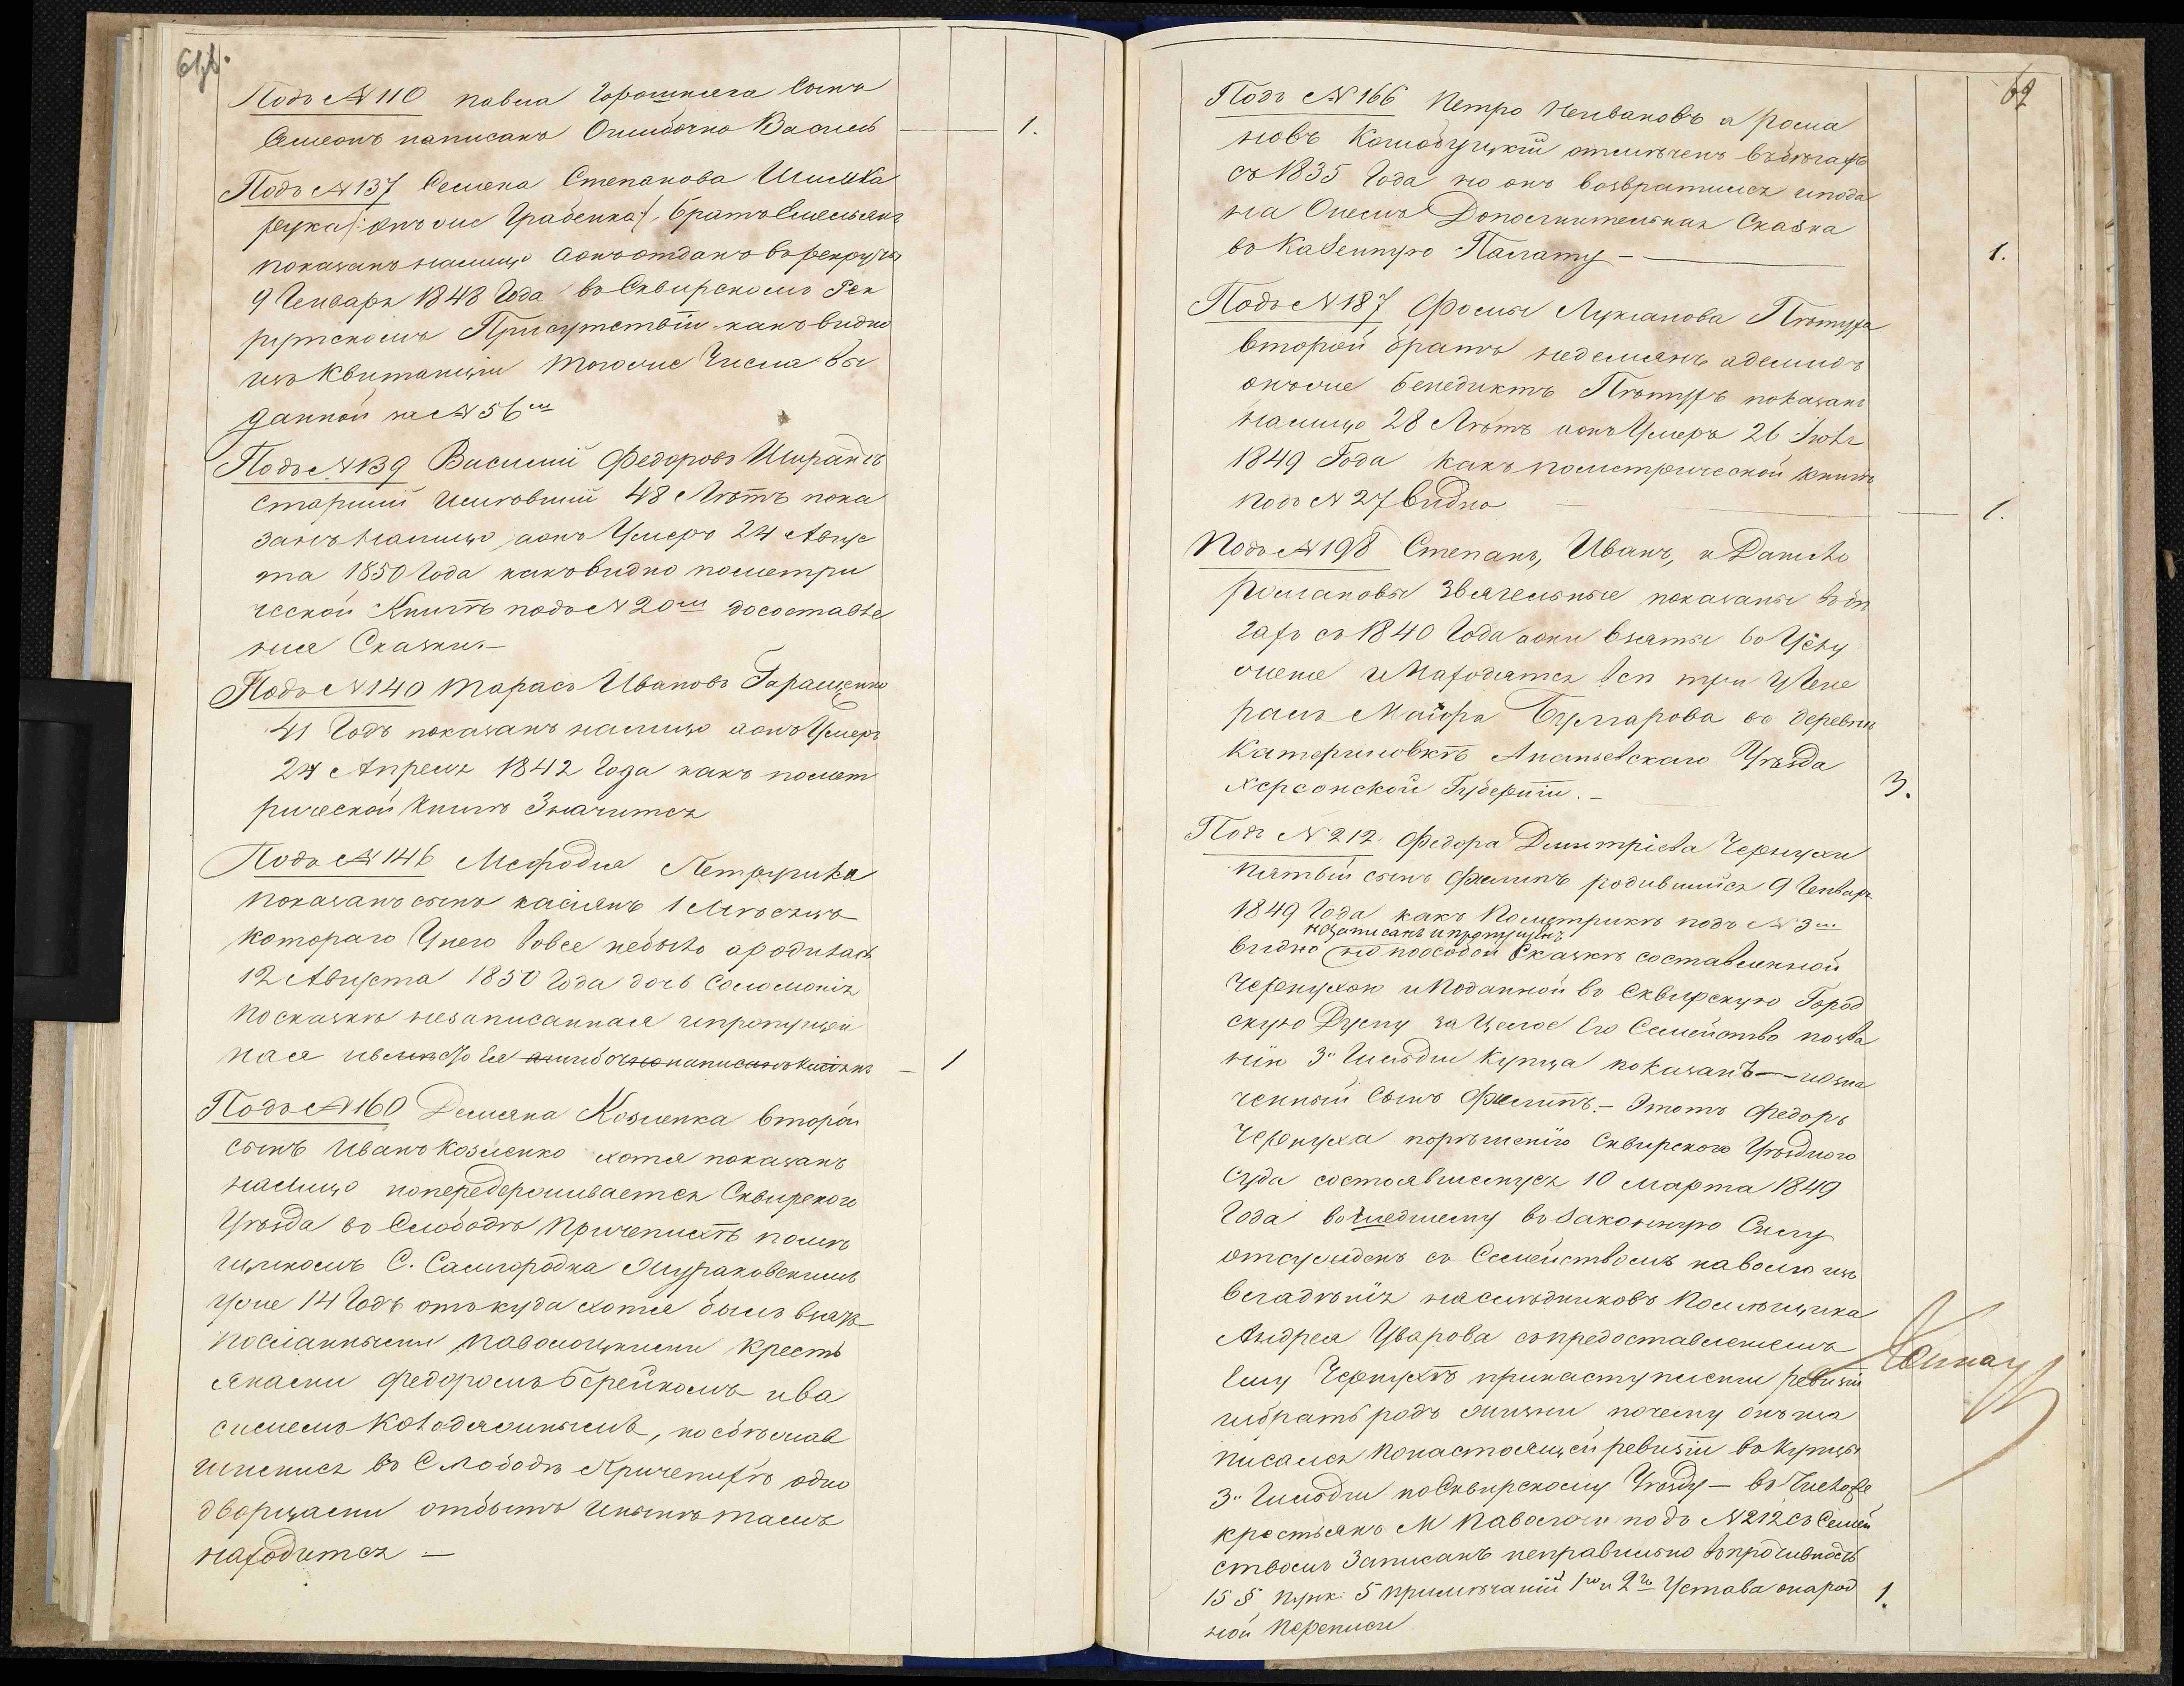 Подъ № 110 Павла Горошнека Сынъ
Семеонъ написанъ Ошибочно Василь 1.
Подъ № 137 Семена Степанова Шишка
рука /: онъ же Грабенка :/ братъ Емельянъ
показанъ налицо аонъ отданъ въ рекруты
9 Генваря 1848 Года въ Сквирскомъ Рек
рутскомъ Присутствіи какъ видно
изъ Квитанціи тогоже Числа вы
данной за № 56м
Подъ № 139 Василій Федоровъ
старшій имѣвшій 48 Лѣтъ пока
занъ налицо, аонъ Умеръ 24 Авгус
та 1850 Года какъ видно пометри
ческой Книгѣ подъ № 20м досоставле
нія Сказки.—
Подъ № 140 Тарасъ Ивановъ Геращенко
41 Годъ показанъ налицо аонъ Умеръ
24 Апреля 1842 Года какъ помет
рической Книгѣ Значится
Подъ № 146 Мефодія Петрурика
показанъ сынъ касіянъ 1 Мѣсяцъ
котораго Унего вовсе небыло ародилась
12 Августа 1850 Года дочь Соломонія
посказкѣ незаписанная ипропущен
ная ивмѣсто Ея ошибочно написанъ Касіянъ — 1
Подъ № 160 Демяна Козленка второй
сынъ Иванъ Козленко хотя показанъ
налицо нопередерживается Сквирского
Уѣзда въ Слободѣ Причепихѣ помѣ
щикомъ С. Самгородка Жураковскимъ
Уже 14 Годъ отъкуда хотя былъ взятъ
посланными паволоцкими кресть
янами Федоромъ Берейкомъ ива
силемъ Колодяжнымъ, нособѣжав
шимися въ Слободѣ Причепихѣ одно
дворцами отбытъ инынѣ тамъ
находится —
62
Подъ № 166 Петро Неивановъ а рома
новъ Колобуцкій отмѣченъ въбѣгахъ
съ 1835 Года но онъ возвратился ипода
на Онемъ Дополнительная Сказка
въ Казенную Палату — 1.
Подъ № 187 Фомы Лукіанова Пѣтуха
второй братъ недемянъ адемидъ
онъже Бенедиктъ Пѣтухъ показанъ
налицо 28 Лѣтъ аонъ Умеръ 26 Іюля
1849 Года какъ пометрической книгѣ
подъ № 27 видно 1.
Подъ № 198 Степанъ, Иванъ, и Данило
романовы Звягельные показаны въбѣ
гахъ съ 1840 Года аони взяты во Успу
жение иНаходятся всѣ три УГене
ралъ Маіора Булгарова въ деревнѣ
Катериновкѣ Ананьевскаго Уѣзда
Херсонской Губерніи.— 3.
Подъ № 212. Федора Димитріева Чернухи
пятый сынъ Филипъ родившийся 9 Генваря
1849 Года какъ Пометрикѣ подъ № 3м
незаписанъ ипропущенъ
видно но поособой Сказкѣ составленной
Чернухою иПоданной въ Сквирскую Город
скую Думу за Целое Его Семейство позва
нію 3й Гильдіи Купца показанъ — изна
ченный Сынъ Филипъ.— Этотъ Федоръ
Чернуха порѣшенію Сквирского Уѣздного
Суда состоявшемуся 10 марта 1849
Года вошедшему въ Законную Силу
отсужденъ со Семействомъ наволю изъ
Владѣнія наслѣдниковъ Помѣщика
Андрея Уварова съпредоставленіемъ
Ему Чернухѣ принаступленіи ревизіи
избрать родъ жизни почему онъ иза
писался Понастоящей ревизіи въ Купцы
3й Гильдіи поСквирскому Уѣзду — въ Числѣже
крестьянъ М Паволочи подъ № 212 съ Семей
ствомъ Записанъ неправильно въпротивность
15 § пунк. 5 примѣчаній 1го и 2го Устава онарод 1.
ной Переписи